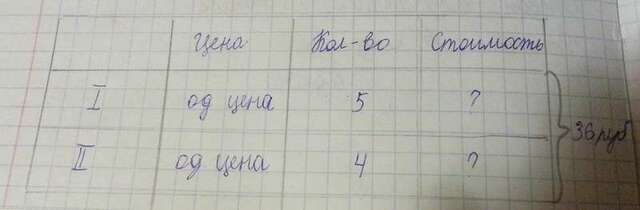 Цена Кол-во Стоимость
I од цена 5 ?
II од цена 4 ?
36 руб